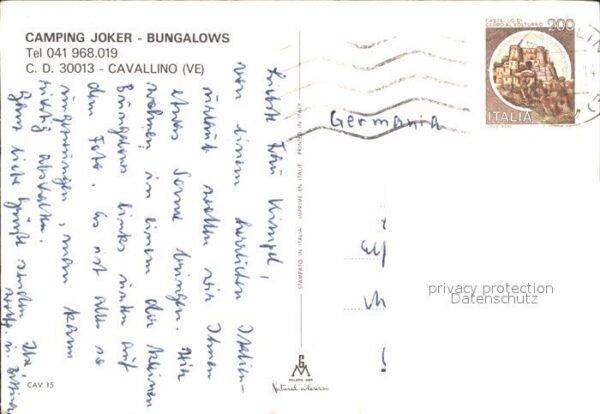 CAMPING JOKER - BUNGALOWS
Tel 041 968.019
C. D. 30013 - CAVALLINO (VE)
Liebe Frau Kimpel,
von einem herrlichen Italien-
urlaub wollen wir Ihnen
etwas Sonne bringen. Wir
wohnen in einem der kleinen
Bungalows links unten auf
dem Foto. Es ist alles so
ungezwungen, man kann
richtig abschalten.
Ganz liebe Grüße senden Ihr
Germania
CASTELLO DI
CERRO AL VOLTURNO
200
ITALIA
STAMPATO IN ITALIA IMPRIME EN ITALIE PRINTED IN ITALY
privacy protection
Datenschutz
CAV 15
Natural colours